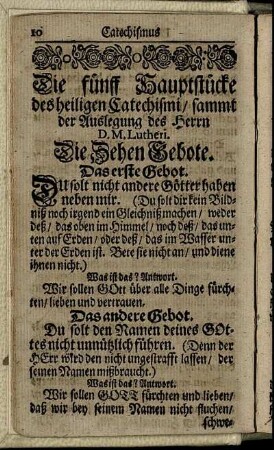 10 Catechismus
Die fünff Hauptstücke
des heiligen Catechismi/ sammt
der Auslegung des Herrn
D. M. Lutheri.
Die Zehen Gebote.
Das erste Gebot.
DU solt nicht andere Götter haben
neben mir. (Du solt dir kein Bild-
niß noch irgend ein Gleichniß machen/ weder
deß/ das oben im Himmel/ noch deß/ das un-
ten auf Erden/ oder deß/ das im Wasser un-
ter der Erden ist. Bete sie nicht an/ und diene
ihnen nicht.)
Was ist das? Antwort.
Wir sollen GOtt über alle Dinge fürch-
ten/ lieben und vertrauen.
Das andere Gebot.
Du solt den Namen deines GOt-
tes nicht unnützlich führen. (Denn der
HErr wird den nicht ungestrafft lassen/ der
seinen Namen mißbraucht.)
Was ist das? Antwort.
Wir sollen GOTT fürchten und lieben/
daß wir bey seinem Namen nicht fluchen/
schwe-